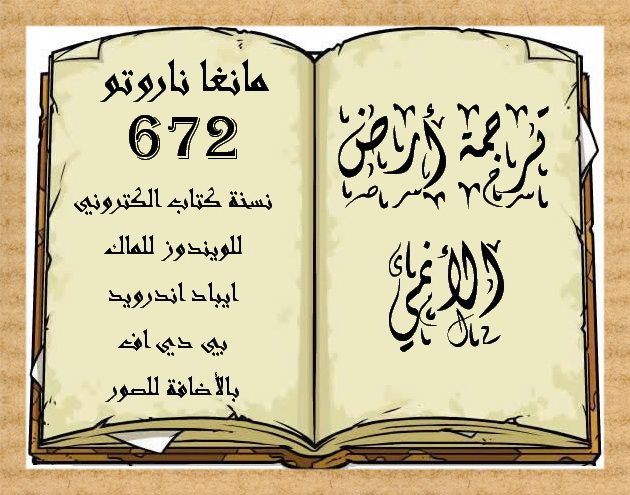 ترجمة أرض
الأنمي
مانغا ناروتو
672
نسخة كتاب الكتروني
للويندوز للماك
ايباد اندرويد
بي دي اف
بالأضافة للصور